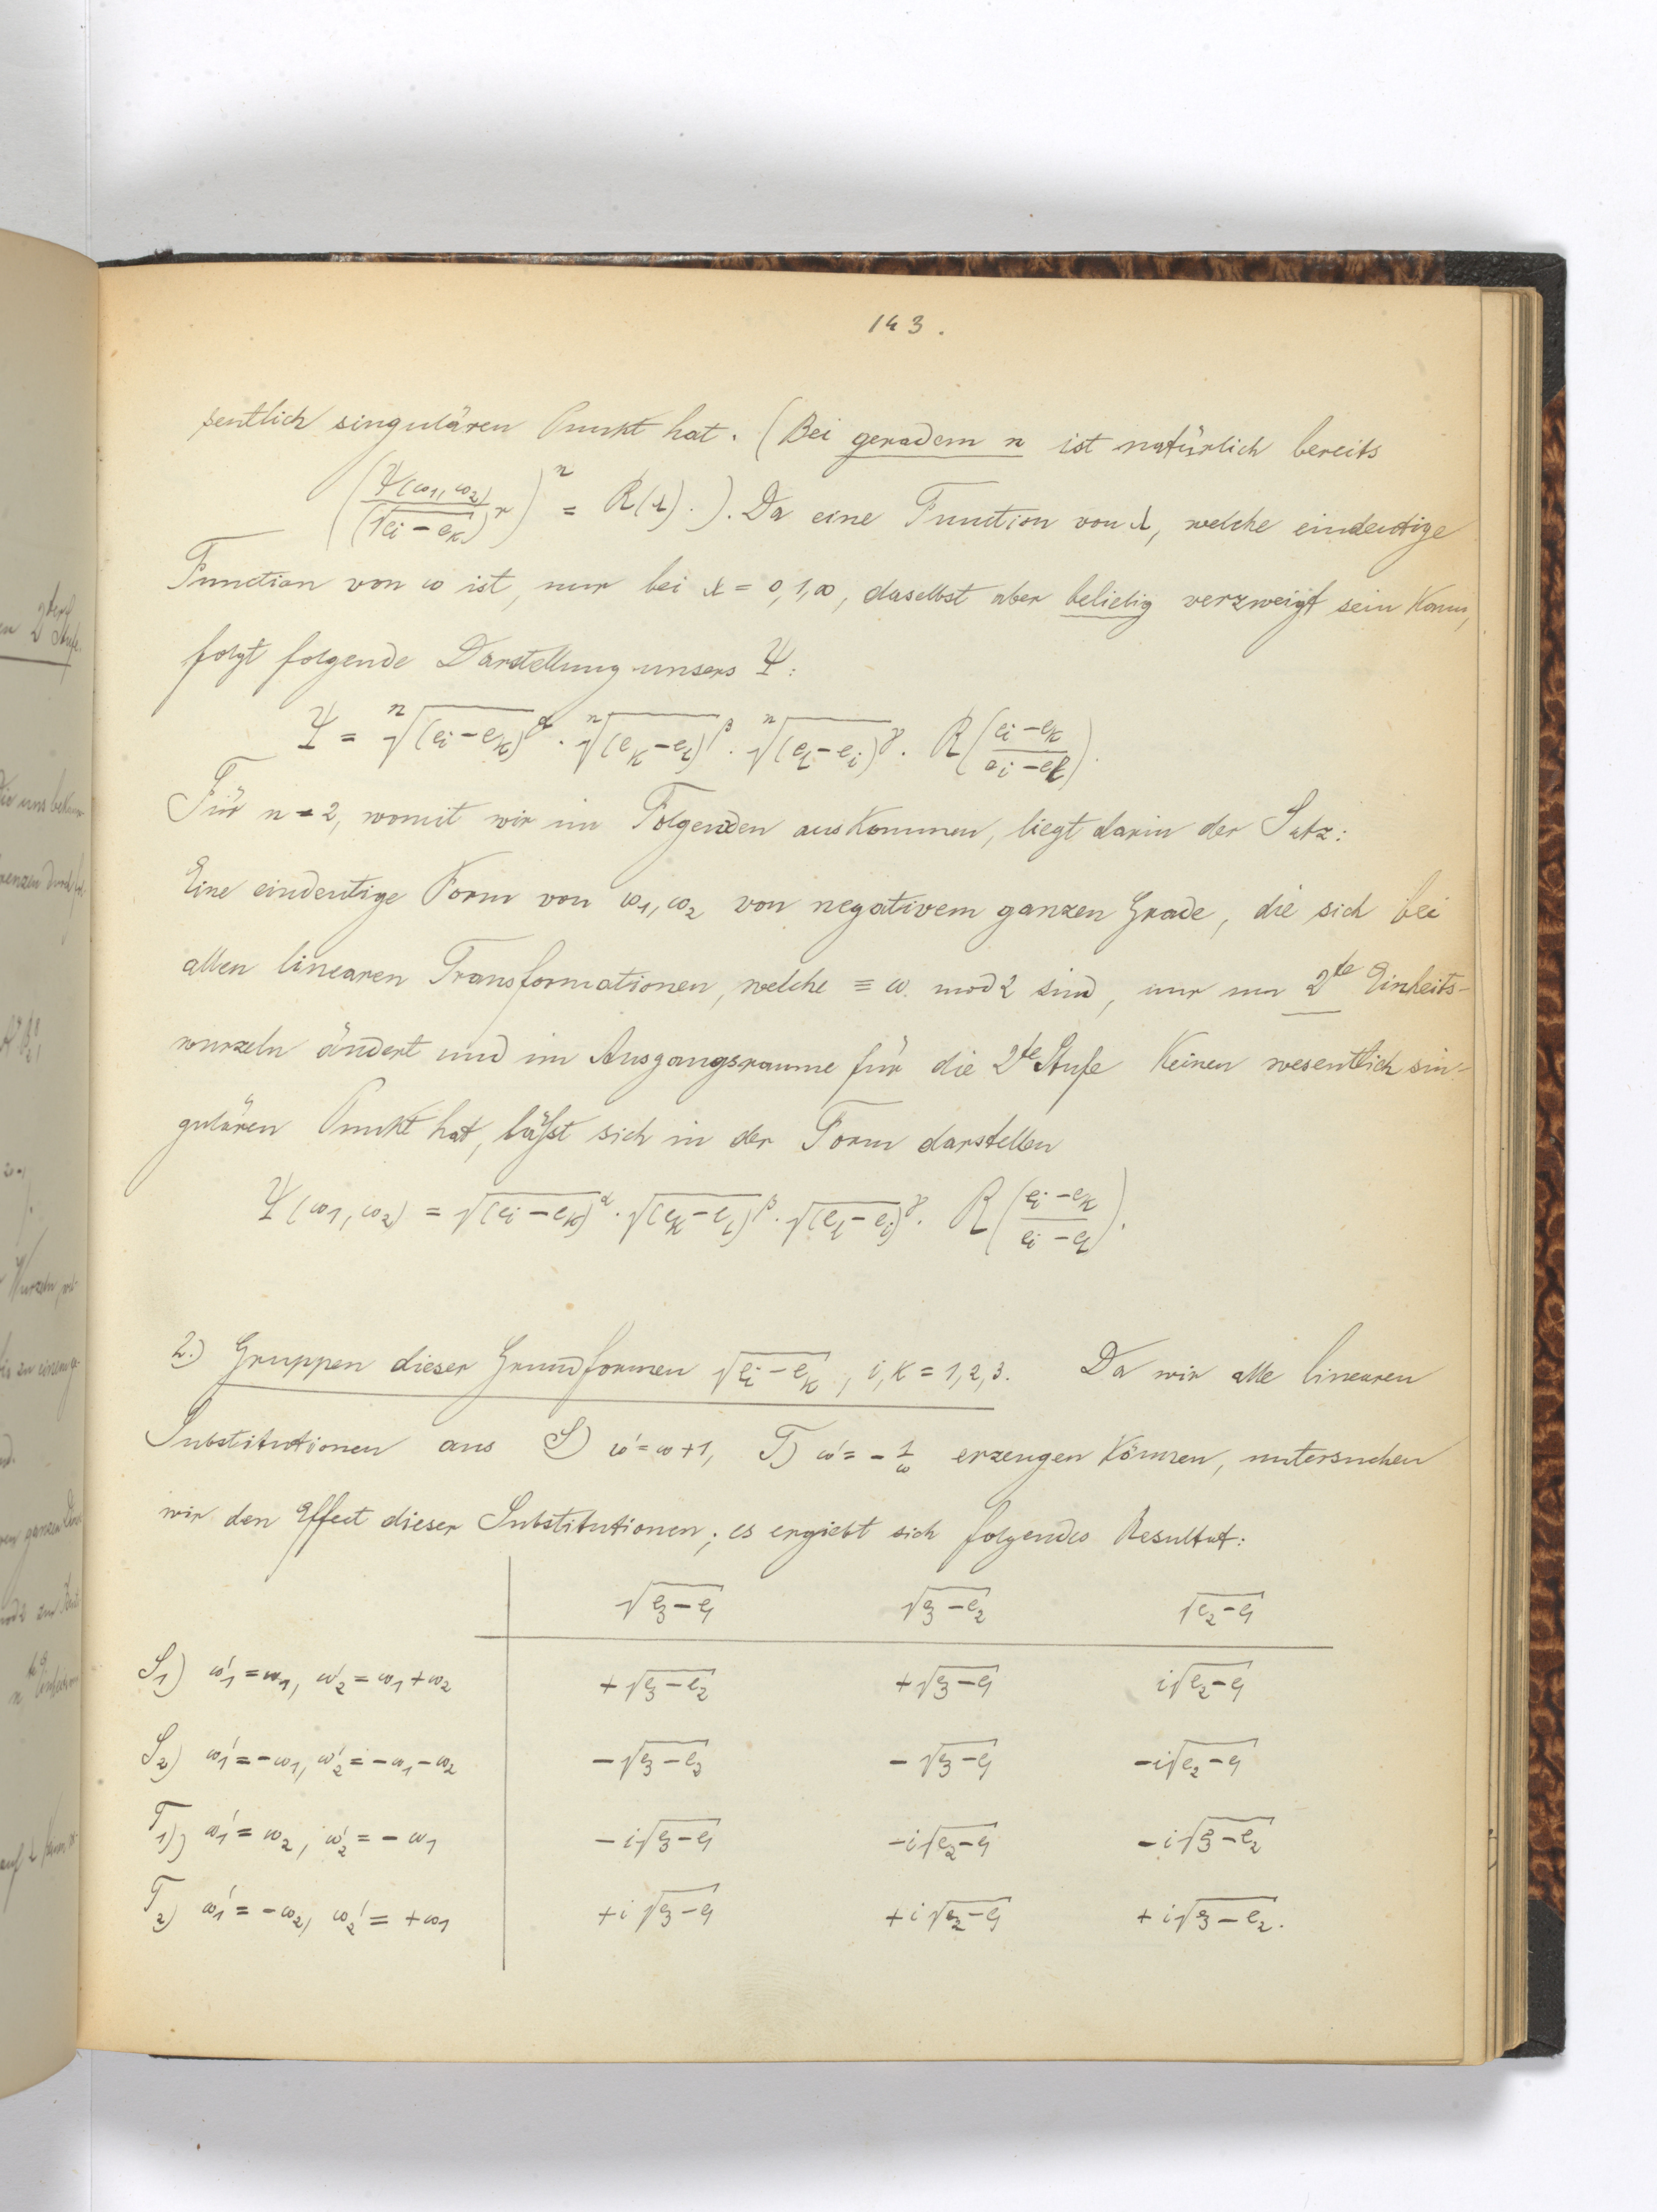 143.
sentlich singulären Punkt hat. (Bei geradem n ist natürlich bereits
(Ψ(ω1, ω2) / (√ei − ek)^r)^n = R(λ).). Da eine Function von λ, welche eindeutige
Function von ω ist, nur bei λ = 0, 1, ∞, daselbst aber beliebig verzweigt sein kann,
folgt folgende Darstellung unsers Ψ:
Ψ = ⁿ√(ei − ek)^α · ⁿ√(ek − el)^β · ⁿ√(el − ei)^γ · R((ei − ek)/(ei − el)).
Für n = 2, womit wir im Folgenden auskommen, liegt darin der Satz:
Eine eindeutige Form von ω1, ω2 von negativem ganzen Grade, die sich bei
allen linearen Transformationen, welche ≡ ω mod 2 sind, nur um 2te Einheits-
wurzeln ändert und im Ausgangsraume für die 2te Stufe keinen wesentlich sin-
gulären Punkt hat, läßt sich in der Form darstellen
Ψ(ω1, ω2) = √(ei − ek)^α · √(ek − el)^β · √(el − ei)^γ · R((ei − ek)/(ei − el)).
2.) Gruppen dieser Grundformen √ei − ek, i, k = 1, 2, 3. Da wir alle linearen
Substitutionen aus S) ω' = ω + 1, T) ω' = − 1/ω erzeugen können, untersuchen
wir den Effect dieser Substitutionen; es ergiebt sich folgendes Resultat:
√e3 − e1 √e3 − e2 √e2 − e1
S1) ω1' = ω1, ω2' = ω1 + ω2 + √e3 − e2 + √e3 − e1 i√e2 − e1
S2) ω1' = −ω1, ω2' = −ω1 − ω2 − √e3 − e2 − √e3 − e1 −i√e2 − e1
T1) ω1' = ω2, ω2' = − ω1 − i√e3 − e1 −i√e2 − e1 − i√e3 − e2
T2) ω1' = −ω2, ω2' = +ω1 +i √e3 − e1 + i √e2 − e1 + i√e3 − e2.